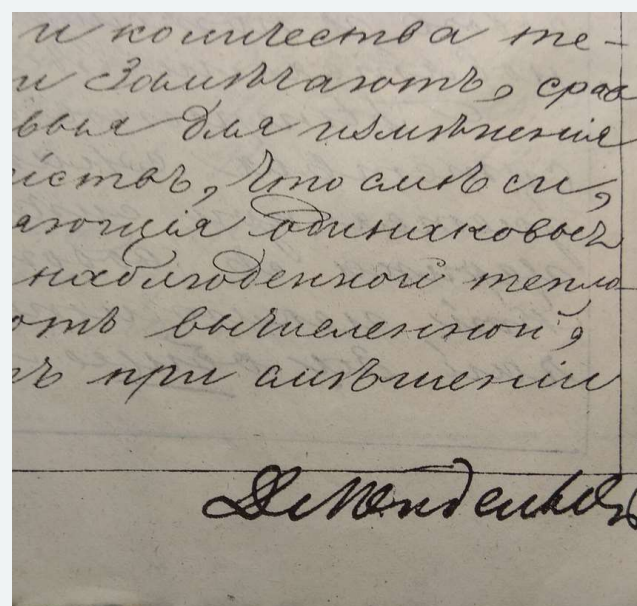 и количества те-
и Замѣчаютъ, срав
выя для измѣненія
йствъ, что смѣси,
ающія одинаковыя
наблюденной тепло
отъ вычисленной,
ъ при смѣшеніи
ДМенделѣевъ